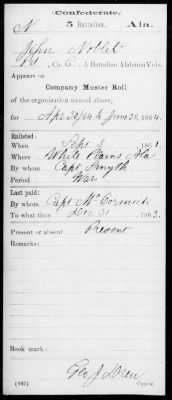 Confederate.
N 5 Battalion. Ala.
John Noblet
Pvt., Co. C, 5 Battalion Alabama Vols.
Appears on
Company Muster Roll
of the organization named above,
for Apr 30/64 to June 30, 1864.
Enlisted:
When Sept 2, 1861.
Where White Plains Ala
By whom Capt. Smyth
Period War
Last paid:
By whom Capt McCormick
To what time Dec 31, 1863.
Present or absent Present
Remarks:
Book mark:
Geo J
(642) Copyist.